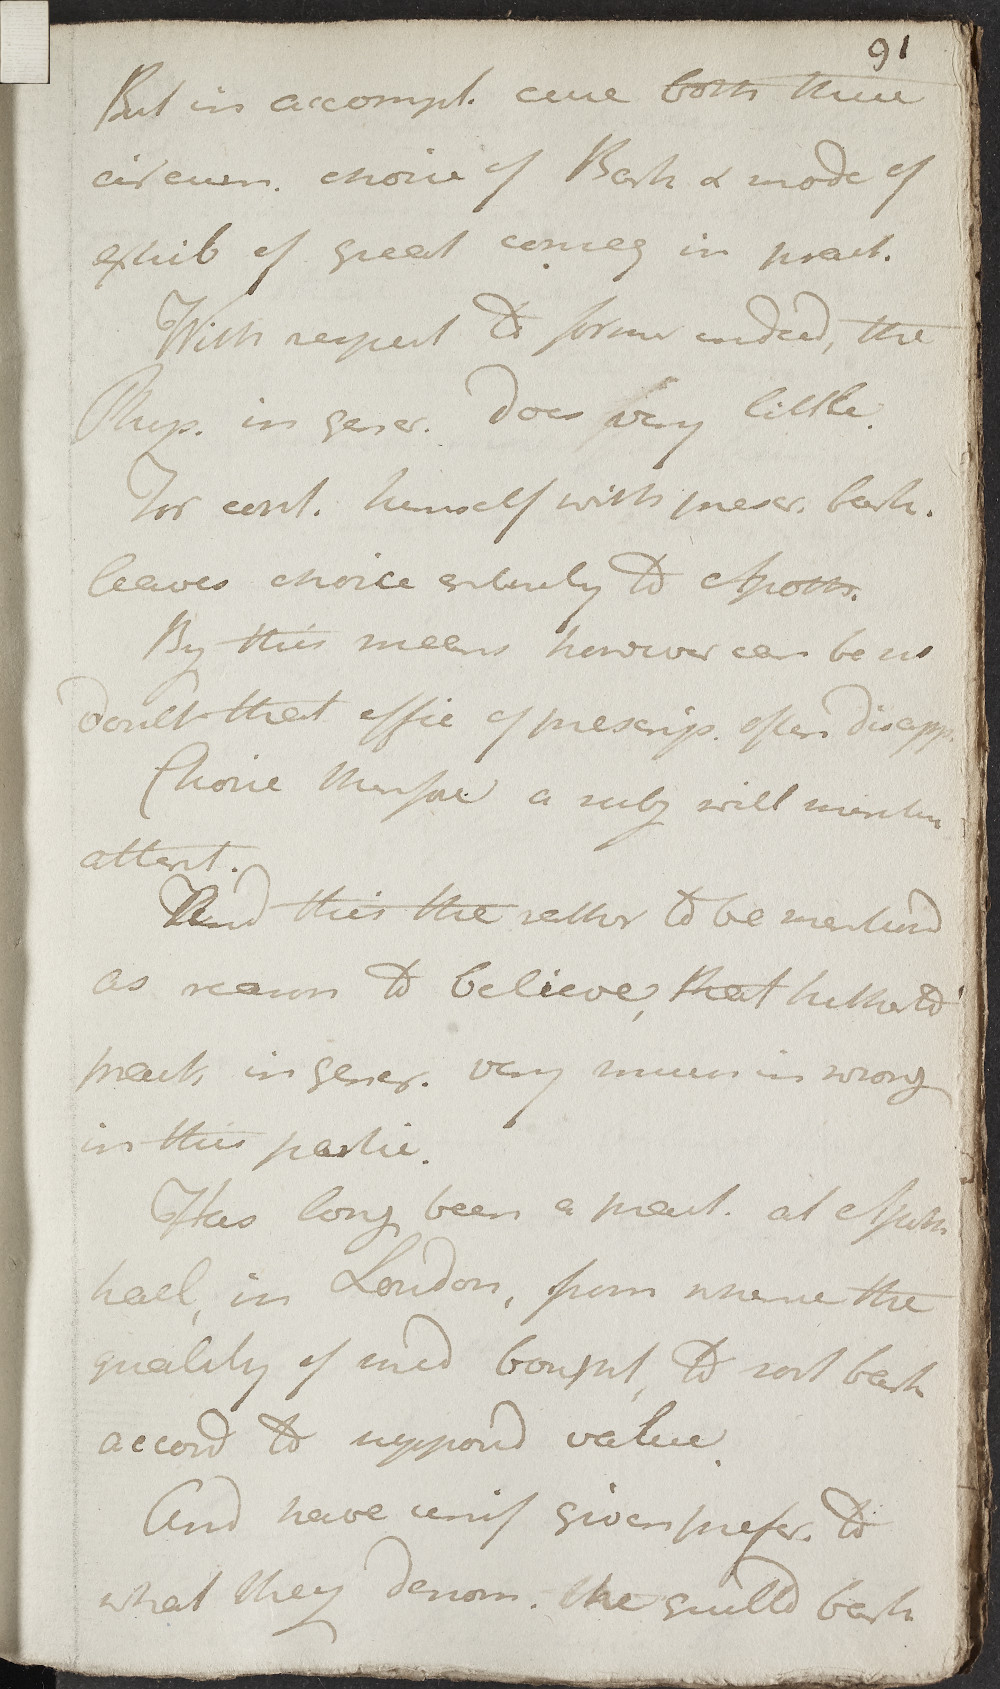 91
But in accompl. cure both these
circum. choice of Bark & mode of
exhib of great conseq in pract.
With respect to former indeed, the
Phys. in gener. does very little.
For cont. himself with prescr. bark.
leaves choice entirely to Apoth.
By this means however can be no
doubt that effic of prescrip. often disapp.
Choice therefore a subj will mention
attent.
And this the rather to be mentiond
as reason to believe, that hitherto
pract. in gener. very much in wrong
in this partic.
Has long been a pract. at Apoth
hall, in London, from whence the
quality of med bought, to sort bark
accord to supposd value.
And have unif given prefer. to
what they denom. the quilld bark